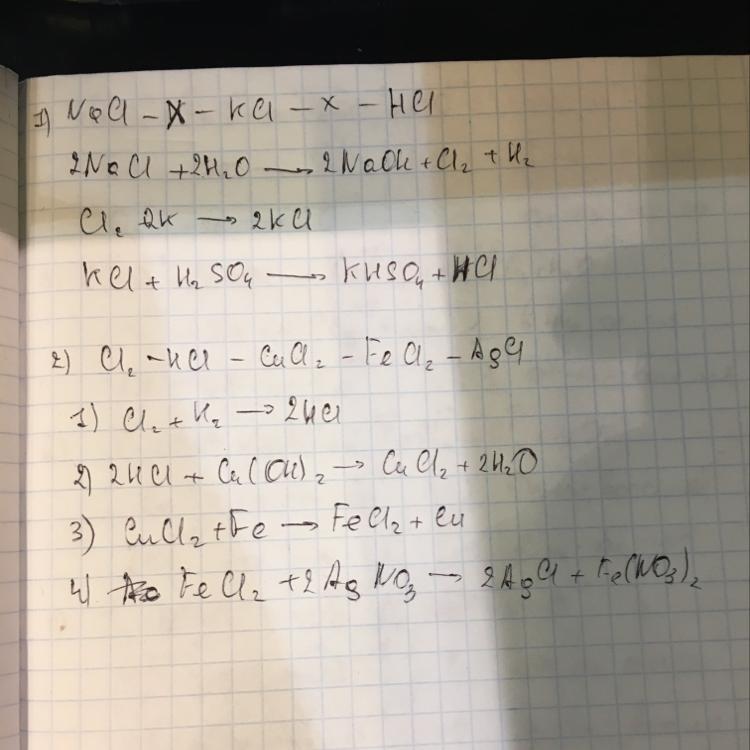 1) NaCl – X – KCl – X – HCl
2NaCl + 2H₂O → 2NaOH + Cl₂ + H₂
Cl₂ 2K → 2KCl
KCl + H₂SO₄ → KHSO₄ + HCl
2) Cl₂ – HCl – CuCl₂ – FeCl₂ – AgCl
1) Cl₂ + H₂ → 2HCl
2) 2HCl + Cu(OH)₂ → CuCl₂ + 2H₂O
3) CuCl₂ + Fe → FeCl₂ + Cu
4) FeCl₂ + 2AgNO₃ → 2AgCl + Fe(NO₃)₂